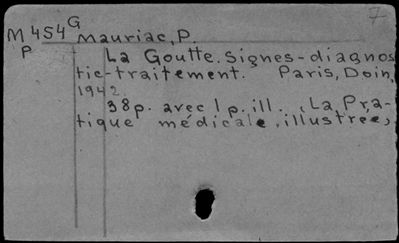 7
M454G Mauriac, P.
P La Goutte. Signes-diagnos
tic-traitement. Paris, Doin,
1942.
38p. avec 1 p. ill. "La Pra-
tique médicale illustrée"